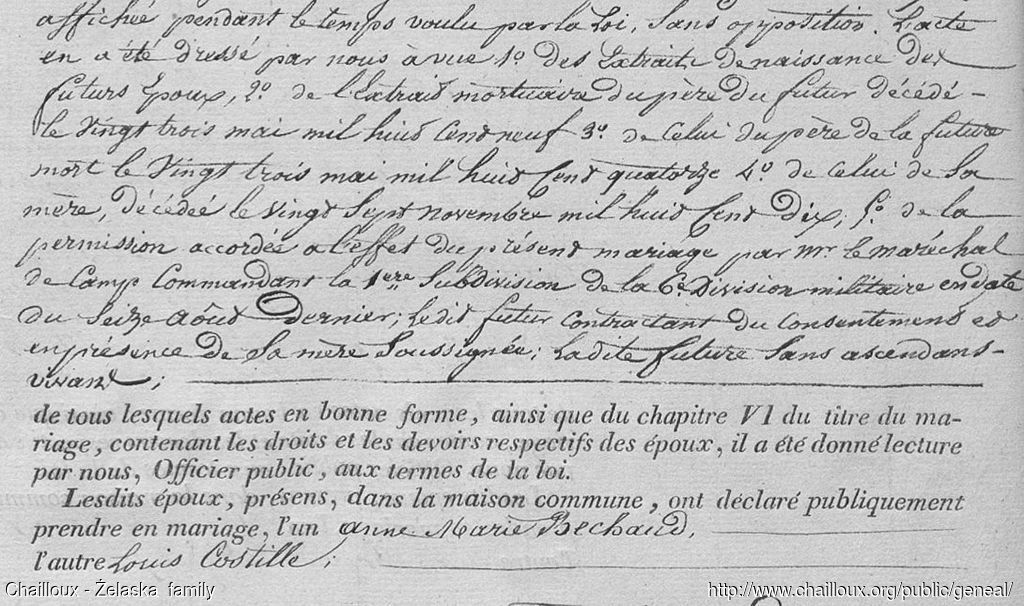 affichée pendant le temps voulu par la Loi, sans opposition. L'acte
en a été dressé par nous à vue 1º des Extraits de naissance des
futurs Epoux, 2º de l'Extrait mortuaire du père du futur décédé -
le Vingt trois mai mil huit Cent neuf 3º de Celui du père de la future
mort le Vingt trois mai mil huit Cent quatorze 4º de Celui de Sa
mère, décédée le vingt Sept novembre mil huit Cent dix; 5º de la
permission accordée a l'effet du présent mariage par mr le maréchal
de Camp Commandant la 1ere Subdivision de la 6e Division militaire en date
du Seize Août Dernier; Ledit futur Contractant du Consentement et
en présence de Sa mère Soussignée; Ladite future Sans ascendans -
vivant;
de tous lesquels actes en bonne forme, ainsi que du chapitre VI du titre du ma-
riage, contenant les droits et les devoirs respectifs des époux, il a été donné lecture
par nous, Officier public, aux termes de la loi.
Lesdits époux, présens, dans la maison commune, ont déclaré publiquement
prendre en mariage, l'un Anne Marie Bechaud,
l'autre Louis Costille;
Chailloux - Żelaska family
http://www.chailloux.org/public/geneal/